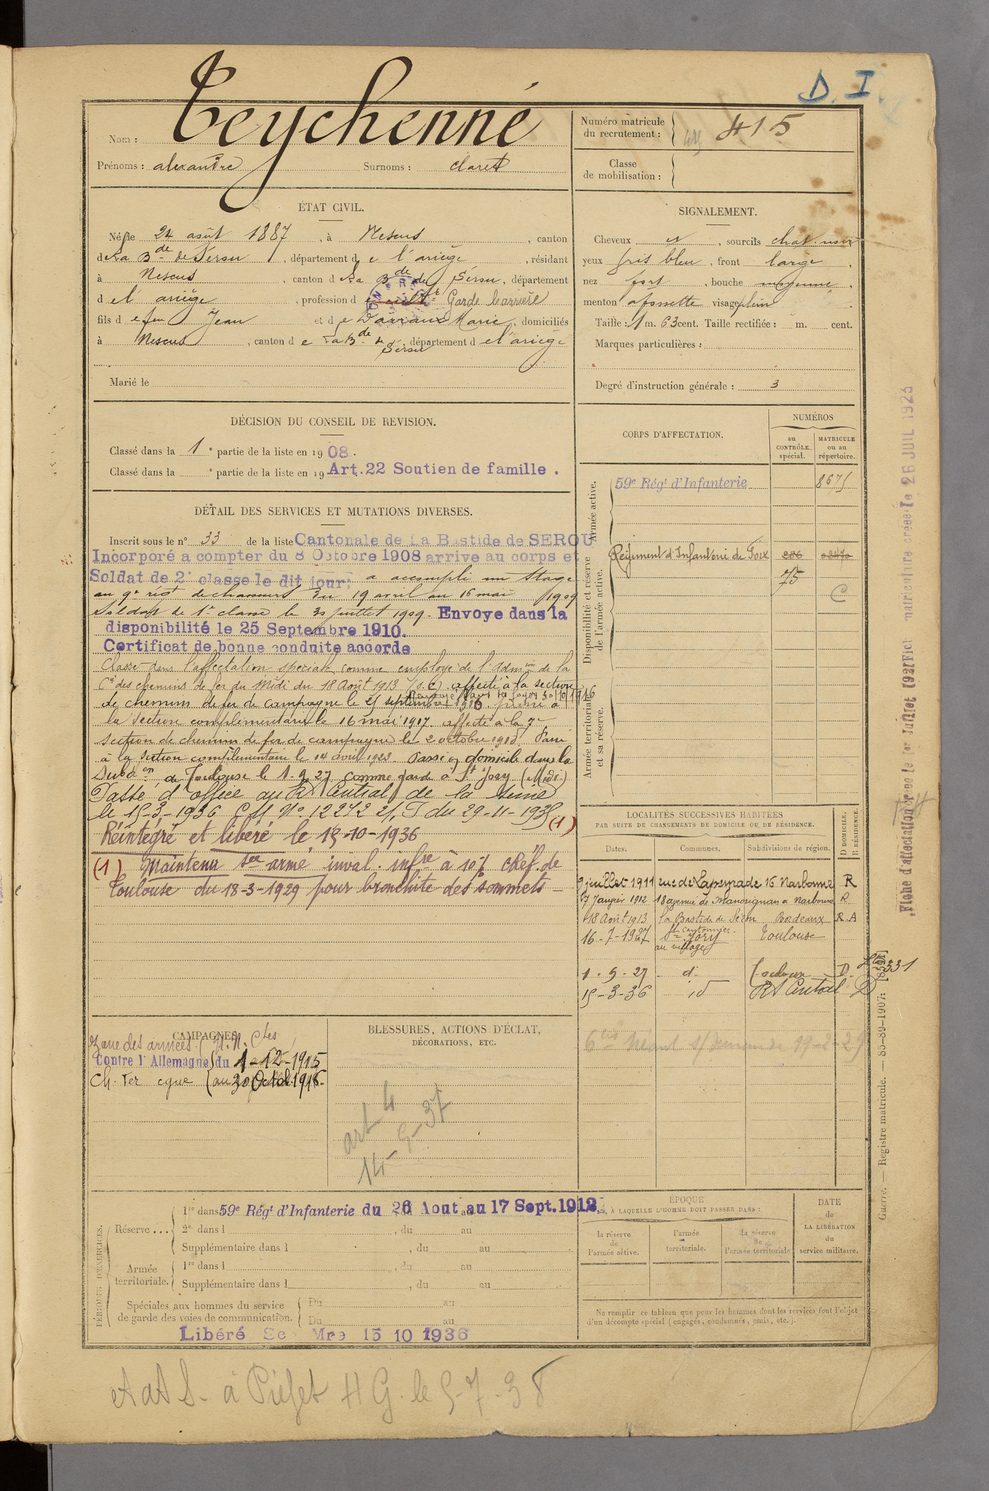 D. I
Nom : Teychenné
Prénoms : alexandre Surnoms : claret
Numéro matricule du recrutement : 415
Classe de mobilisation :
ÉTAT CIVIL.
Né le 24 août 1887, à Nescus, canton
de La B de de Sérou, département de l'ariège, résidant
à Nescus, canton de La B de de Sérou, département
de l'ariège, profession de Garde barrière
fils de feu Jean et de Darraux Marie, domiciliés
à Nescus, canton de La B de de Sérou, département de l'ariège
Marié le
SIGNALEMENT.
Cheveux et, sourcils chat. noir
yeux gris bleu, front large,
nez fort, bouche moyenne,
menton a fossette visage plein
Taille : 1 m. 63 cent. Taille rectifiée : m. cent.
Marques particulières :
Degré d'instruction générale : 3
DÉCISION DU CONSEIL DE REVISION.
Classé dans la 1 e partie de la liste en 1908.
Classé dans la e partie de la liste en 19 Art. 22 Soutien de famille.
DÉTAIL DES SERVICES ET MUTATIONS DIVERSES.
Inscrit sous le n° 33 de la liste Cantonale de La Bastide de SEROU
Incorporé a compter du 8 Octobre 1908 arrive au corps et
Soldat de 2e classe le dit jour; a accompli un stage
au 9e rgt de chasseurs du 19 avril au 16 mai 1909
Soldat de 1e classe le 30 juillet 1909. Envoye dans la
disponibilité le 25 Septembre 1910.
Certificat de bonne conduite accorde
Classé dans l'affectation spéciale comme employé de l'Admon de la
Cie des chemins de fer du Midi du 18 Août 1913 (s.C). affecté à la section
de chemin de fer de campagne le 25 septembre 1916. passé à
la Section complémentaire le 16 mai 1917. affecté à la 7e
section de chemin de fer de campagne le 2 octobre 1918. Passé
à la section complémentaire le 14 avril 1923. Passé domicile dans la
Subdon de Toulouse le 1.9.27 comme garde à St Jory (Midi)
Passé d'office au Rt Central de la Seine
le 15-3-1936 C.M. No 12272 du 29-11-1935 (1)
Réintégré et libéré le 13-10-1936
(1) Maintenu sce armé inval. infre à 10% Cref. de
Toulouse du 18-3-1929 pour bronchite des sommets
CORPS D'AFFECTATION.
NUMÉROS
au CONTRÔLE spécial.
MATRICULE ou au répertoire.
Armée active.
59e Régt d'Infanterie 8675
Disponibilité et réserve de l'armée active.
Régiment d'Infanterie de Foix
75
C
Armée territoriale et sa réserve.
LOCALITÉS SUCCESSIVES HABITÉES
PAR SUITE DE CHANGEMENTS DE DOMICILE OU DE RÉSIDENCE.
Dates. Communes. Subdivisions de région. D DOMICILE, R RÉSIDENCE.
9 juillet 1911 rue de Lapeyrade 16 Narbonne R
7 Janvier 1912 18 avenue de Narbonne R
18 Août 1913 La Bastide de Sérou Bordeaux R A
16-7-1927 St Jory au village Toulouse
1-9-27 d° Toulouse D
15-3-36 id Rt Central D
331
CAMPAGNES
Zone des armées
Contre l'Allemagne du 1-12-1915
au 30 Octob. 1916
BLESSURES, ACTIONS D'ÉCLAT,
DÉCORATIONS, ETC.
art 4
14-5-37
6 Néant s/ demande 19-2-29
PÉRIODES D'EXERCICES.
Réserve ... 1re dans 59e Régt d'Infanterie du 26 Aout au 17 Sept. 1912
2e dans l , du au
Supplémentaire dans l , du au
Armée territoriale. 1re dans l , du au
Supplémentaire dans l , du au
Spéciales aux hommes du service de garde des voies de communication. Du au
Du au
Libéré Sce Mre 15 10 1936
ÉPOQUE
À LAQUELLE L'HOMME DOIT PASSER DANS :
la réserve de l'armée active.
l'armée territoriale.
la réserve de l'armée territoriale
DATE de LA LIBÉRATION du service militaire.
Ne remplir ce tableau que pour les hommes dont les services font l'objet
d'un décompte spécial (engagés, condamnés, omis, etc.).
Fiche d'affectation créée le 1er Juillet 1921
Fiche matriculaire créée le 26 JUIL 1923
Guerre. — Registre matricule. — 83-89-1907. [8321]
et à Préfet H G. le 5-7-38